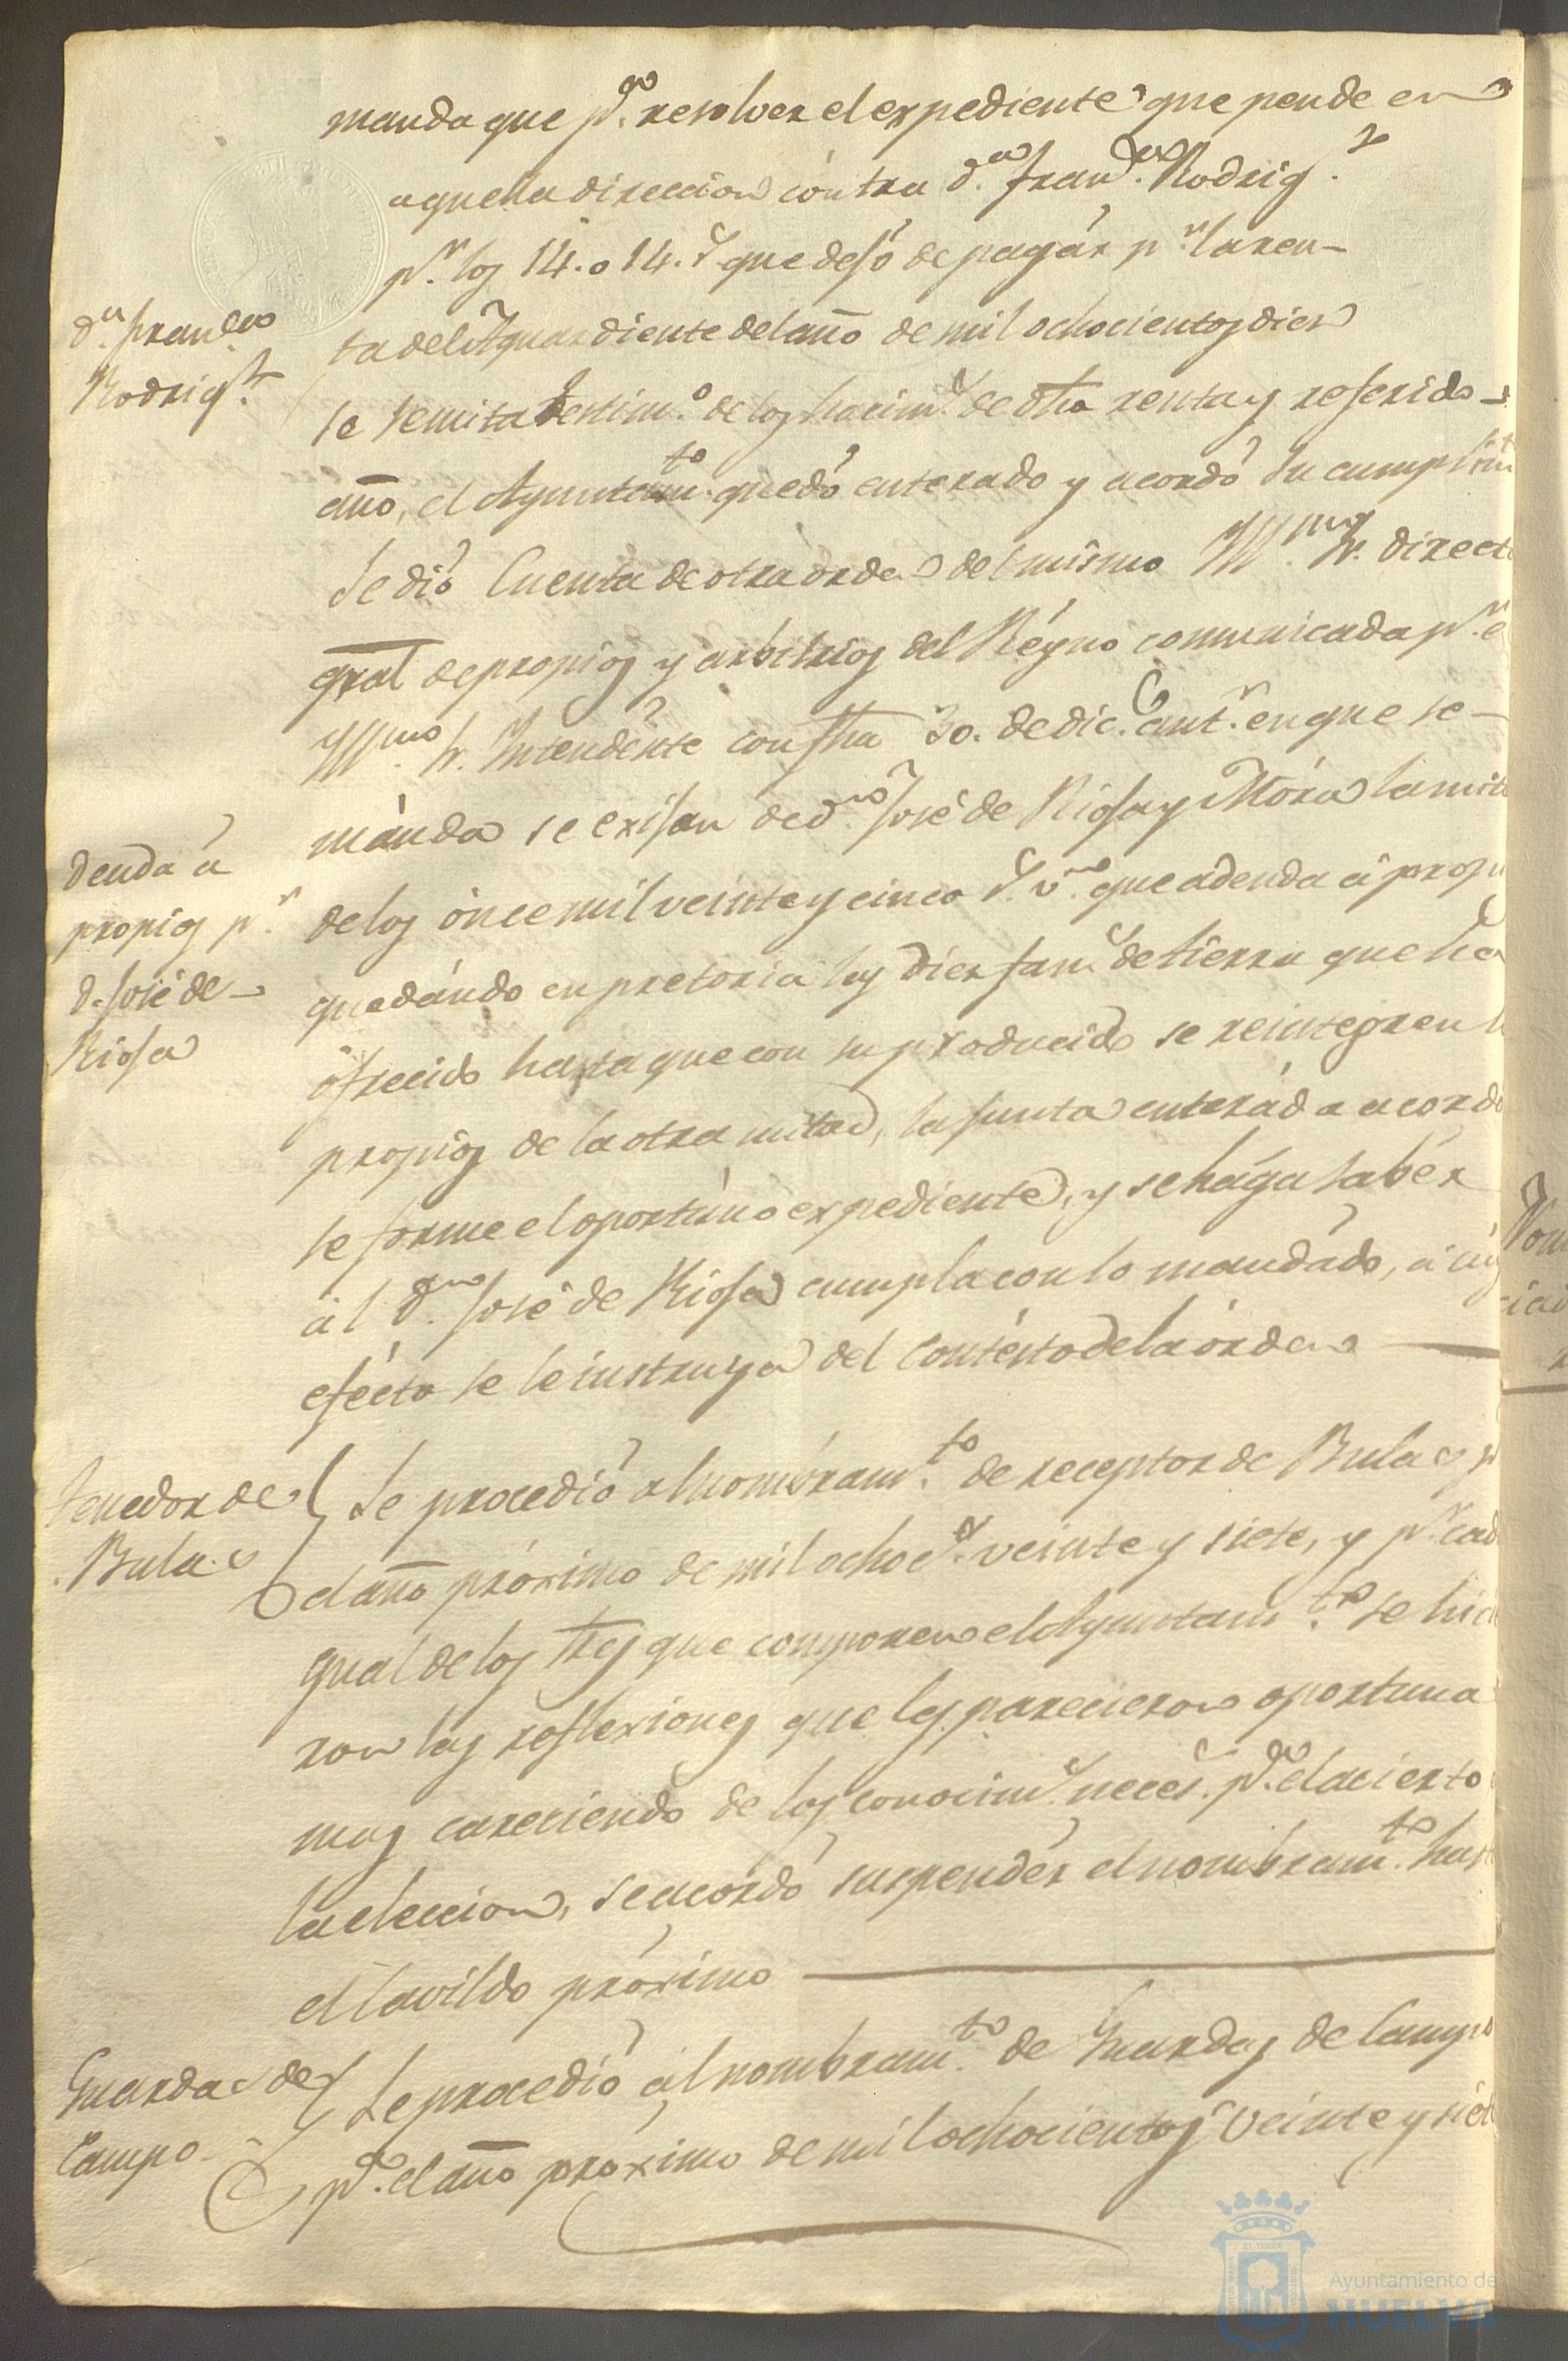 manda que p.ª resolver el expediente que pende en
aquella direccion contra d.n Fran.co Rodrig.z
p.r los 14.o 14.s que dejó de pagár p.r la ren-
d.n Fran.co
Rodrig.z
ta del Aguardiente del año de mil ochocientos diez
se remita testim.o de los hacim.s de dha renta y referido
año, el Ayuntam.to quedó enterado y acordó su cumplim
Se dió Cuenta de otra orden del mismo Yll.mo Sr. direct
gral de propios y arbitrios del Réyno comunicada p.r e
Yll.mo Sr. Yntendénte con fha 30. de dic.e ant.r en que se
deuda á
propios p.r
d. José de
Riosa
mánda se exijan de d.n José de Riosa y Móra la mit
de los ónce mil veinte y cinco r.s v.n que adeuda á propi
quedándo en pretoria las diez fan.s de tierra que ha
ofrecido hasta que con su producido se reintegren
propios de la otra mitad, la junta enteráda acordó
se forme el oportúno expediente, y se hága sabér
ál d.n José de Riosa cumpla con lo mandádo, á cuy
efécto se le instruya del contésto de la órden
tenedor de
Bulas
Se procedió al nombram.to de receptor de Bulas p
el año próximo de mil ochoc.s veinte y siete, y p.r cad
qual de los Sres que componen el Ayuntam.to se hicie
ron las reflexiones que les parecieron oportuna
mas careciendo de los conocim.s neces.s p.ª el acierto
la eleccion, se acordó suspendér el nombram.to hast
el Cavildo próximo
Guardas de
Campo
Se procedió ál nombram.to de Guardas de Campo
p.ª el año próximo de mil ochocientos veinte y siet
Ayuntamiento de
HUELVA